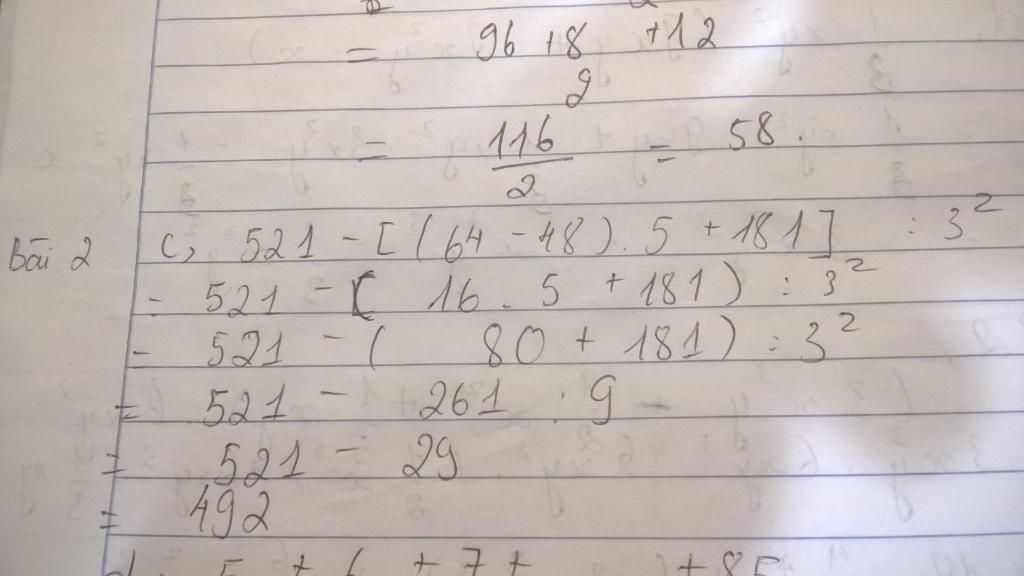 = 96 + 8 + 12
2
= 116 / 2 = 58.
Bài 2 c, 521 - [(64 - 48) . 5 + 181] : 3²
= 521 - ( 16 . 5 + 181) : 3²
= 521 - ( 80 + 181) : 3²
= 521 - 261 : 9
= 521 - 29
= 492
5 + 6 + 7 + + 85